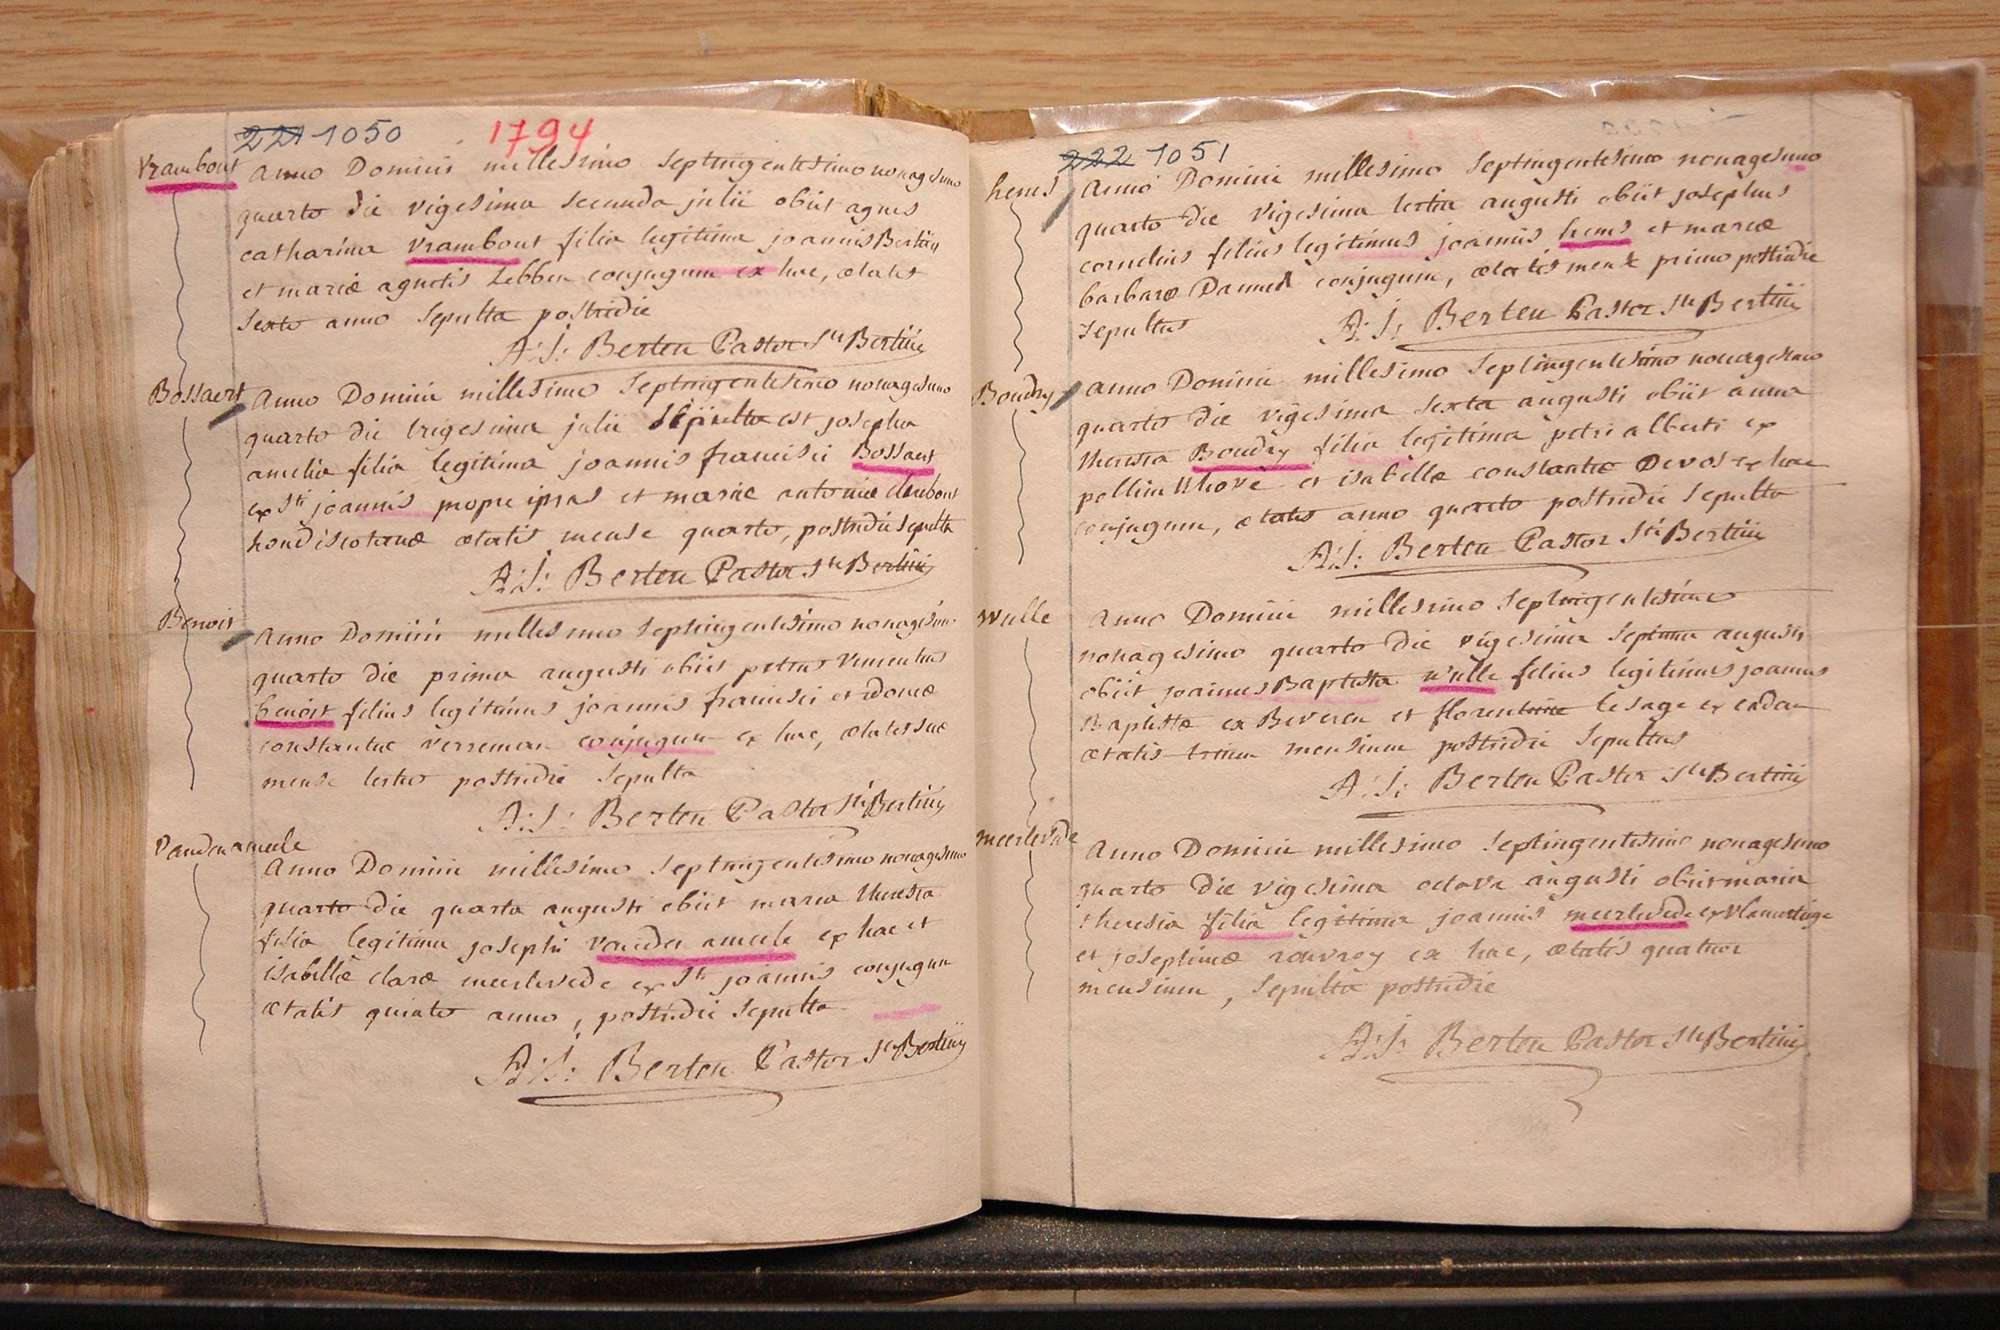 221 1050 1794
Vrambout
Anno Domini millesimo septingentesimo nonagesimo
quarto die vigesima secunda julii obiit agnes
catharina Vrambout filia legitima joannis Bertin
et mariæ agnetis Lebben conjugum ex hac, ætatis
sexto anno sepulta postridie
A: J: Berten Pastor Sti Bertini
Bossaert
Anno Domini millesimo septingentesimo nonagesimo
quarto die trigesima julii sepulta est josepha
amelia filia legitima joannis francisci Bossaut
ex Sti joannis prope ipras et mariæ antoniæ
hondiscotanæ ætatis mense quarto, postridie sepulta
A: J: Berten Pastor Sti Bertini
Benoit
Anno Domini millesimo septingentesimo nonagesimo
quarto die prima augusti obiit petrus
benoit filius legitimus joannis francisci et idoniæ
constantiæ verreman conjugum ex hac, ætatis suæ
mense tertio postridie sepulta
A: J: Berten Pastor Sti Bertini
Vandenameele
Anno Domini millesimo septingentesimo nonagesimo
quarto die quarta augusti obiit maria theresia
filia legitima josephi vanden ameele ex hac et
isabillæ claræ meerlevede ex Sti joannis conjugum
ætatis quinto anno, postridie sepulta
A: J: Berten Pastor Sti Bertini
222 1051
hems
Anno Domini millesimo septingentesimo nonagesimo
quarto die vigesima tertia augusti obiit josephus
cornelius filius legitimus joannis hems et mariæ
barbaræ conjugum, ætatis mense primo postridie
sepultus
A: J: Berten Pastor Sti Bertini
Boudry
Anno Domini millesimo septingentesimo nonagesimo
quarto die vigesima sexta augusti obiit anna
theresia Boudry filia legitima petri alberti ex
pollinkhove et isabillæ constantiæ Devos ex hac
conjugum, ætatis anno quarto postridie sepulta
A: J: Berten Pastor Sti Bertini
wulle
Anno Domini millesimo septingentesimo
nonagesimo quarto die vigesima septima augusti
obiit joannes Baptista wulle filius legitimus joannis
Baptistæ ex Beveren et florentinæ lesage ex eadem
ætatis trium mensium postridie sepultus
A: J: Berten Pastor Sti Bertini
meerlevede
Anno Domini millesimo septingentesimo nonagesimo
quarto die vigesima octava augusti obiit maria
theresia filia legitima joannis meerlevede ex vlamertinge
et josephinæ rouvroy ex hac, ætatis quatuor
mensium, sepulta postridie
A: J: Berten Pastor Sti Bertini